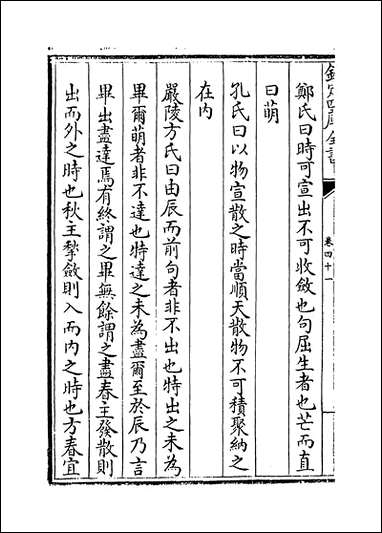 欽定四庫全書
卷四十一
鄭氏曰時可宣出不可收斂也句屈生者也芒而直
曰萌
孔氏曰以物宣散之時當順天散物不可積聚納之
在内
嚴陵方氏曰由辰而前句者非不出也特出之未為
畢爾萌者非不達也特達之未為盡爾至於辰乃言
畢出盡達焉有終謂之畢無餘謂之盡春主發散則
出而外之時也秋主揫斂則入而内之時也方春宜